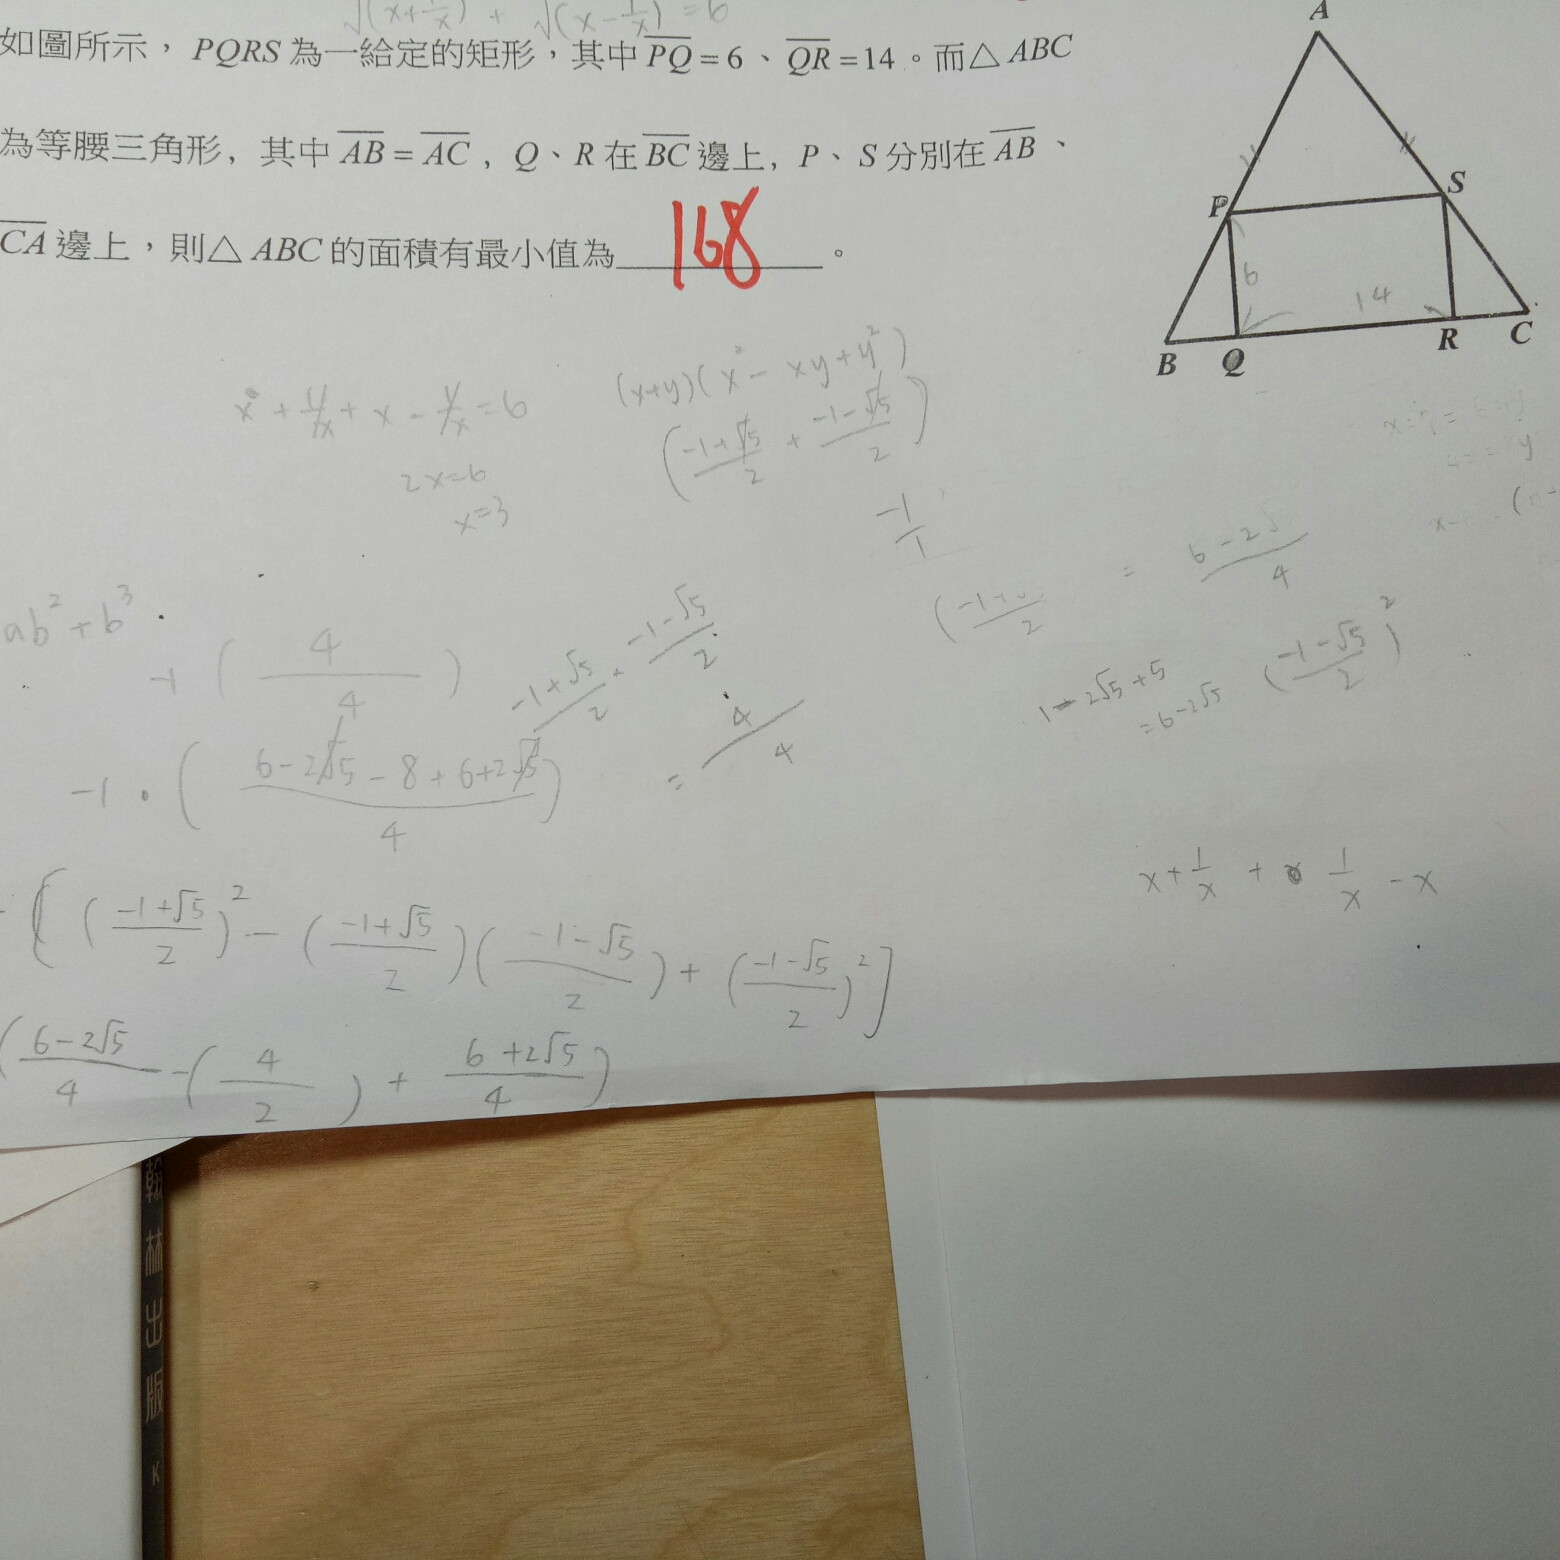 √(x+1/x) + √(x-1/x) = 6
如圖所示，PQRS為一給定的矩形，其中PQ=6、QR=14。而△ABC
為等腰三角形，其中AB=AC，Q、R在BC邊上，P、S分別在AB、
CA邊上，則△ABC的面積有最小值為 168 。
A
P
S
6
14
B
Q
R
C
x + y/x + x - y/x = 6
2x=6
x=3
(x+y)(x²-xy+y²)
(-1+√5/2 + -1-√5/2)
-1/1
ab²+b³
-1 (4/4)
-1+√5/2 · -1-√5/2
= 4/4
= 6-2√
4
1-2√5+5
=6-2√5
(-1-√5/2)²
-1 · (6-2√5-8+6+2√5/4)
x+1/x + 1/x -x
[(-1+√5/2)² - (-1+√5/2)(-1-√5/2) + (-1-√5/2)²]
(6-2√5/4 - (4/2) + 6+2√5/4)
翰林出版
K